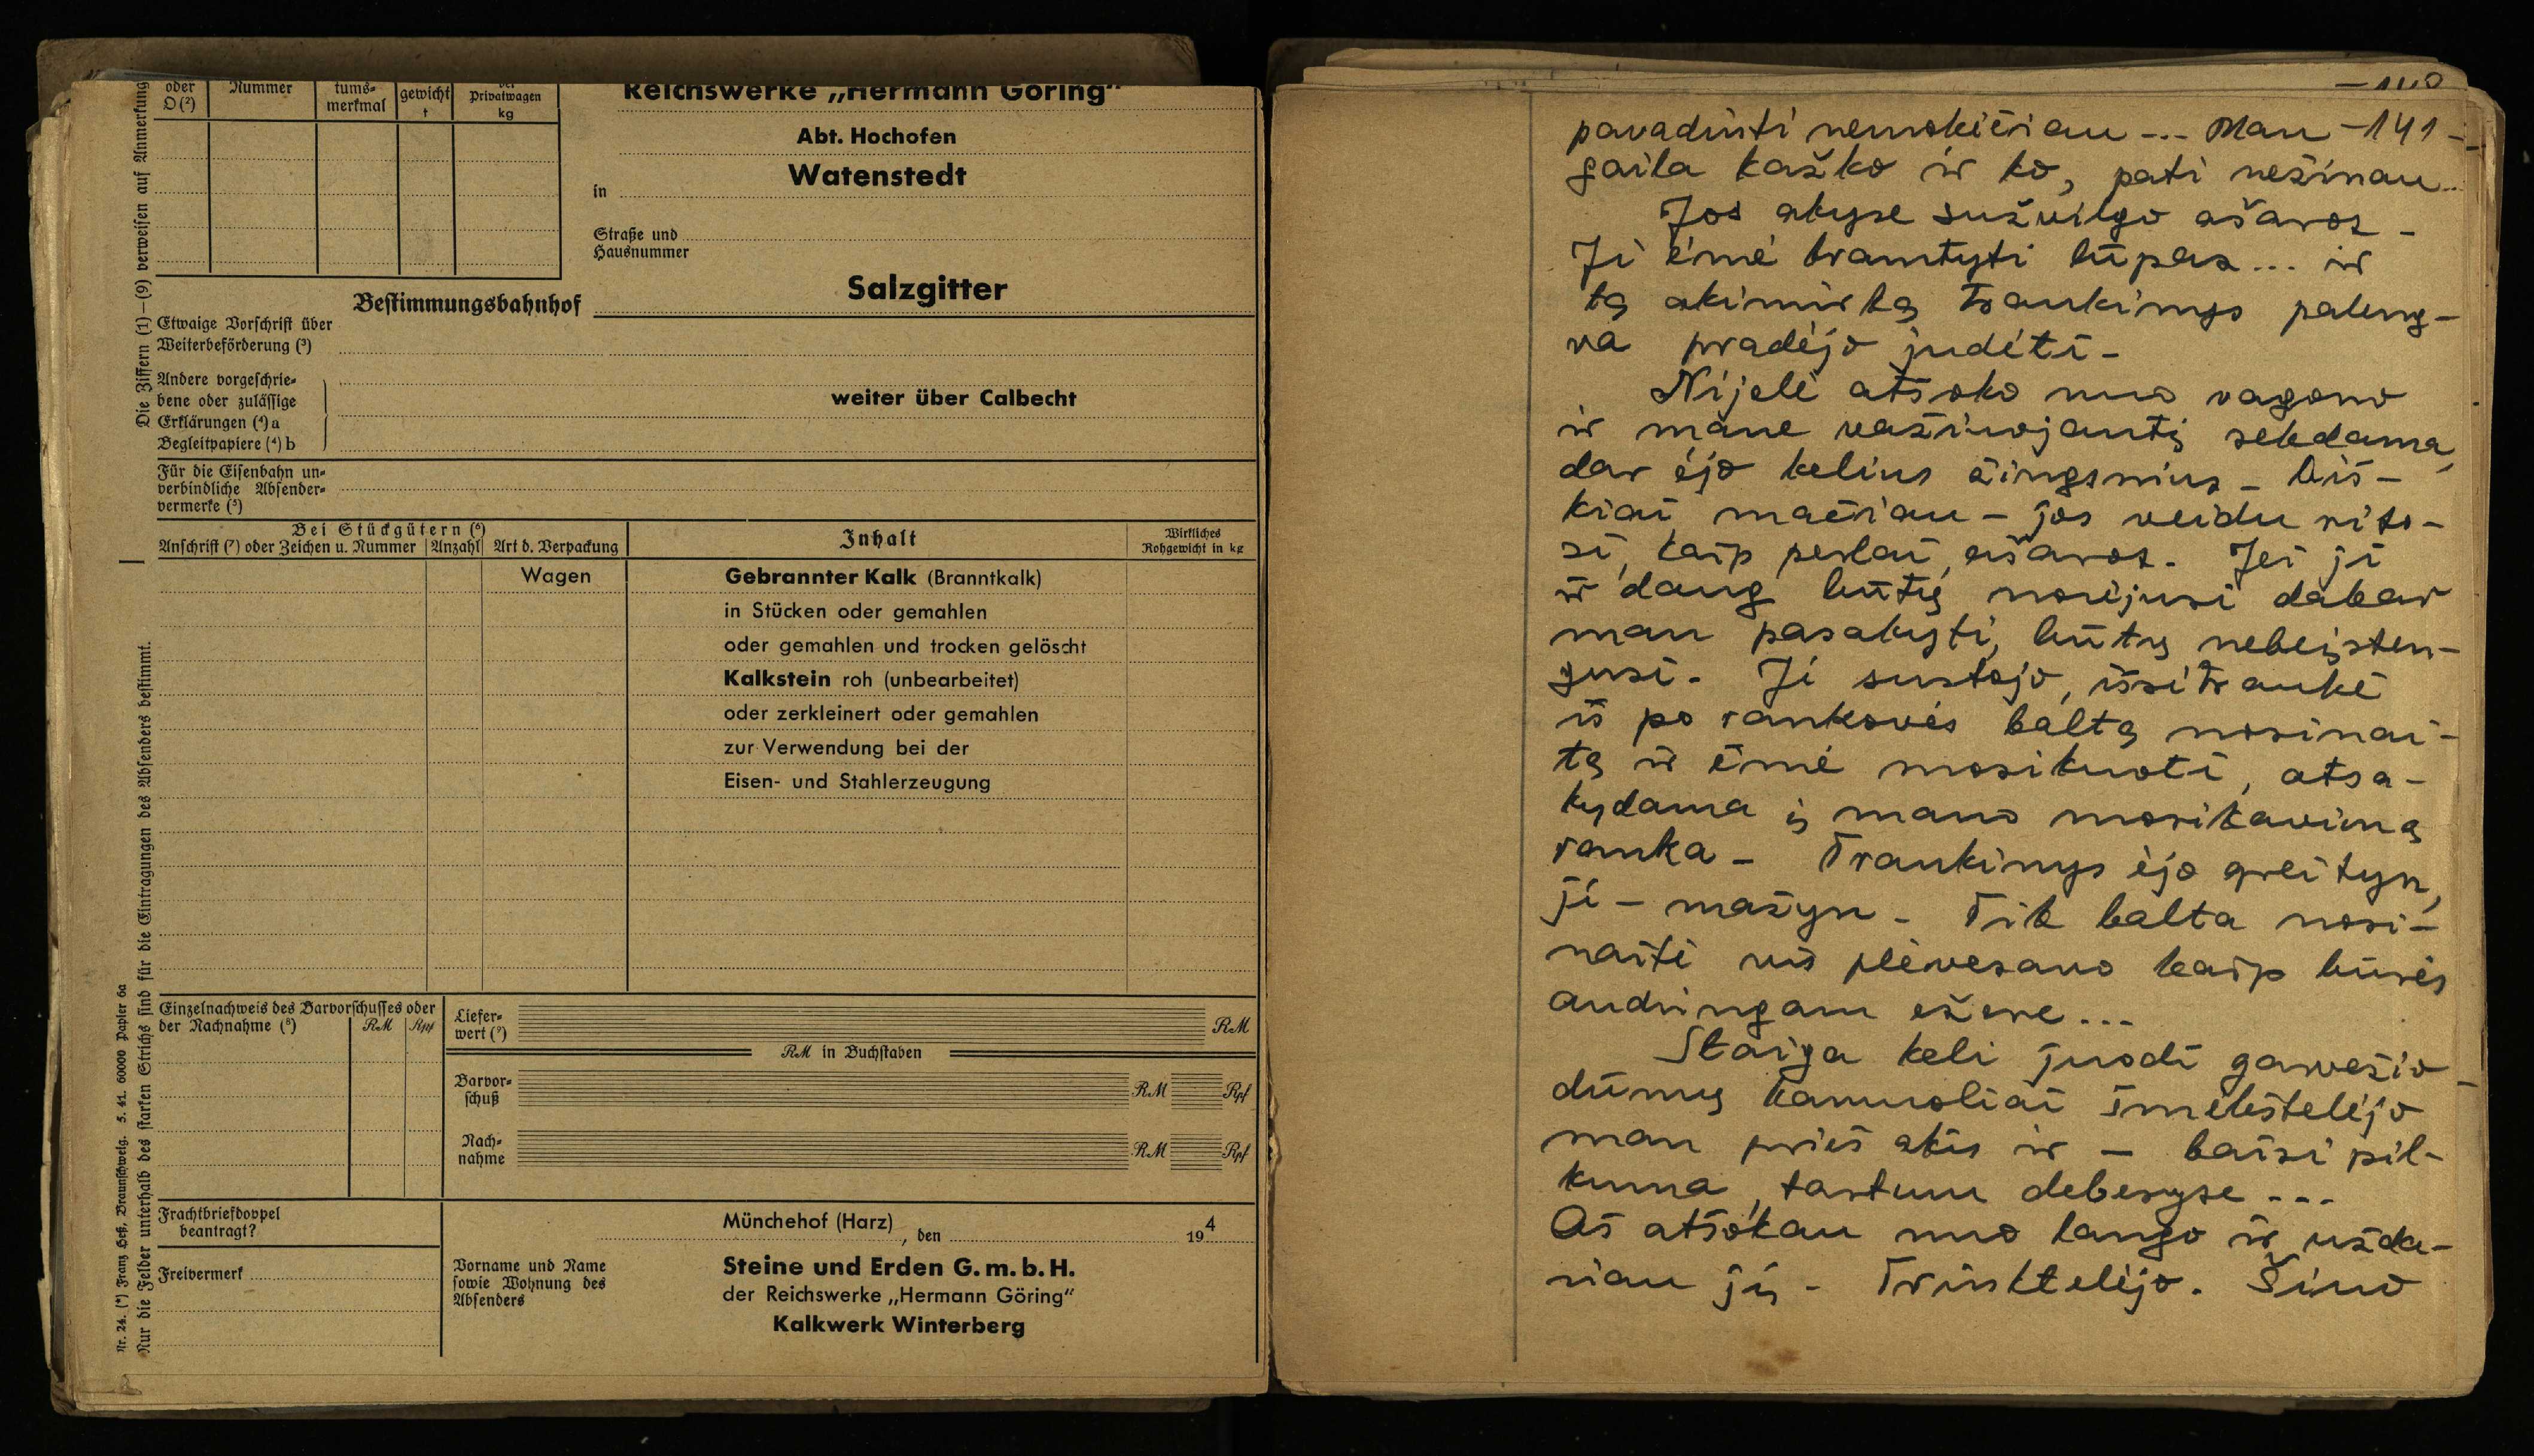 oder
O (²)
Nummer
tums-
merkmal
gewicht
t
der
Privatwagen
kg
Reichswerke „Hermann Göring“
Abt. Hochofen
Watenstedt
in
Straße und
Hausnummer
Salzgitter
Bestimmungsbahnhof
Etwaige Vorschrift über
Weiterbeförderung (³)
Andere vorgeschrie-
bene oder zulässige
Erklärungen (⁴) a
Begleitpapiere (⁴) b
weiter über Calbecht
Für die Eisenbahn un-
verbindliche Absender-
vermerke (⁵)
Bei Stückgütern (⁶)
Anschrift (⁷) oder Zeichen u. Nummer
Anzahl
Art d. Verpackung
Inhalt
Wirkliches
Rohgewicht in kg
Wagen
Gebrannter Kalk (Branntkalk)
in Stücken oder gemahlen
oder gemahlen und trocken gelöscht
Kalkstein roh (unbearbeitet)
oder zerkleinert oder gemahlen
zur Verwendung bei der
Eisen- und Stahlerzeugung
Einzelnachweis des Barvorschusses oder
der Nachnahme (⁸)
RM
Rpf
Liefer-
wert (⁹)
RM
RM in Buchstaben
Barvor-
schuß
RM
Rpf
Nach-
nahme
RM
Rpf
Frachtbriefdoppel
beantragt?
Freivermerk
Münchehof (Harz)
, den
194
Vorname und Name
sowie Wohnung des
Absenders
Steine und Erden G.m.b.H.
der Reichswerke „Hermann Göring“
Kalkwerk Winterberg
Die Ziffern (1)—(9) verweisen auf Anmerkung
Nur die Felder unterhalb des starken Strichs sind für die Eintragungen des Absenders bestimmt.
Nr. 24. (*) Franz Heß, Braunschweig. 5. 41. 60000 Papier 6a
-140
pavadinti nemokėčiau --- Man -141-
gaila kažko ir ko, pati nežinau...
Jos akyse sužvilgo ašaros -
Ji ėmė kramtyti lūpas... ir
tą akimirką traukinys paleng-
va pradėjo judėti -
Nijelė atšoko nuo vagono
ir mane važiuojantį sekdama,
dar ėjo kelius žingsnius - Aiš-
kiai mačiau - jos veidu rito-
si, kaip perlai, ašaros. Jei ji
ir daug būtų norėjusi dabar
man pasakyti, būtų nebeįsten-
gusi. Ji sustojo, išsitraukė
iš po rankovės baltą nosinai-
tę ir ėmė mosikuoti, atsa-
kydama į mano mosikavimą
ranka - Traukinys ėjo greityn,
ji - mažyn - Tik balta nosi-
naitė vis plėvesavo kaip burės
audringam ežere...
Staiga keli juodi garvežio -
dūmų kamuoliai šmėkštelėjo
man prieš akis ir - baisi pil-
kuma, tartum debesyse ---
Aš atšokau nuo lango ir užda-
riau jį - Trinktelėjo. Šiuo